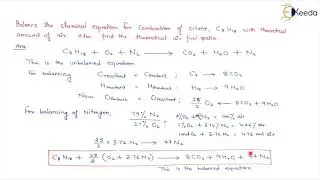 Ekeeda
Balance the chemical equation for combustion of octane, C8H18 with theoretical
amount of air. Also find the theoretical air fuel ratio.
Ans
C8H18 + O2 + N2 → CO2 + H2O + N2
This is the unbalanced equation
For balancing Creactant = Cproduct : C8 → 8CO2
Hreactant = Hproduct : H18 → 9H2O
Now Oreactant = Oproduct : 25/2 O2 ← 8CO2 + 9H2O
For balancing of Nitrogen, 79% N2 / 21% O2
1 mol O2 + 3.76 N2 = 4.76 mol air
25/2 × 3.76 N2 → 47 N2
C8H18 + 25/2 (O2 + 3.76N2) → 8CO2 + 9H2O + 47 N2
This is the balanced equation